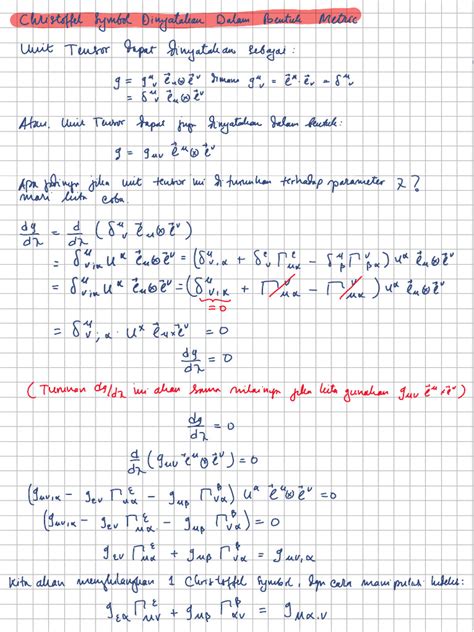 Christoffel Symbol Dinyatakan Dalam Bentuk Metric
Unit Tensor dapat dinyatakan sebagai:
g = g^μ_ν e⃗_μ⊗e⃗^ν dimana g^μ_ν = e⃗^μ·e⃗_ν = δ^μ_ν
= δ^μ_ν e⃗_μ⊗e⃗^ν
Atau, Unit Tensor dapat juga dinyatakan dalam bentuk:
g = g_μν e⃗^μ⊗e⃗^ν
Apa jadinya jika unit tensor ini di turunkan terhadap parameter λ?
mari kita coba.
dg/dλ = d/dλ (δ^μ_ν e⃗_μ⊗e⃗^ν)
= δ^μ_ν;α u^α e⃗_μ⊗e⃗^ν = (δ^μ_ν,α + δ^ε_ν Γ^μ_εα − δ^μ_β Γ^β_να) u^α e⃗_μ⊗e⃗^ν
= δ^μ_ν;α u^α e⃗_μ⊗e⃗^ν = (δ^μ_ν,α + Γ^ν_μα − Γ^ν_μα) u^α e⃗_μ⊗e⃗^ν
= 0
= δ^μ_ν;α · u^α e⃗_μ×e⃗^ν = 0
dg/dλ = 0
(Turunan dg/dλ ini akan sama nilainya jika kita gunakan g_μν e⃗^μ×e⃗^ν)
dg/dλ = 0
d/dλ (g_μν e⃗^μ⊗e⃗^ν) = 0
(g_μν,α − g_εν Γ^ε_μα − g_μβ Γ^β_να) u^α e⃗^μ⊗e⃗^ν = 0
(g_μν,α − g_εν Γ^ε_μα − g_μβ Γ^β_να) = 0
g_εν Γ^ε_μα + g_μβ Γ^β_να = g_μν,α
Kita akan menghilangkan 1 Christoffel Symbol, dgn cara manipulasi indeks:
g_εα Γ^ε_μν + g_μβ Γ^β_αν = g_μα,ν